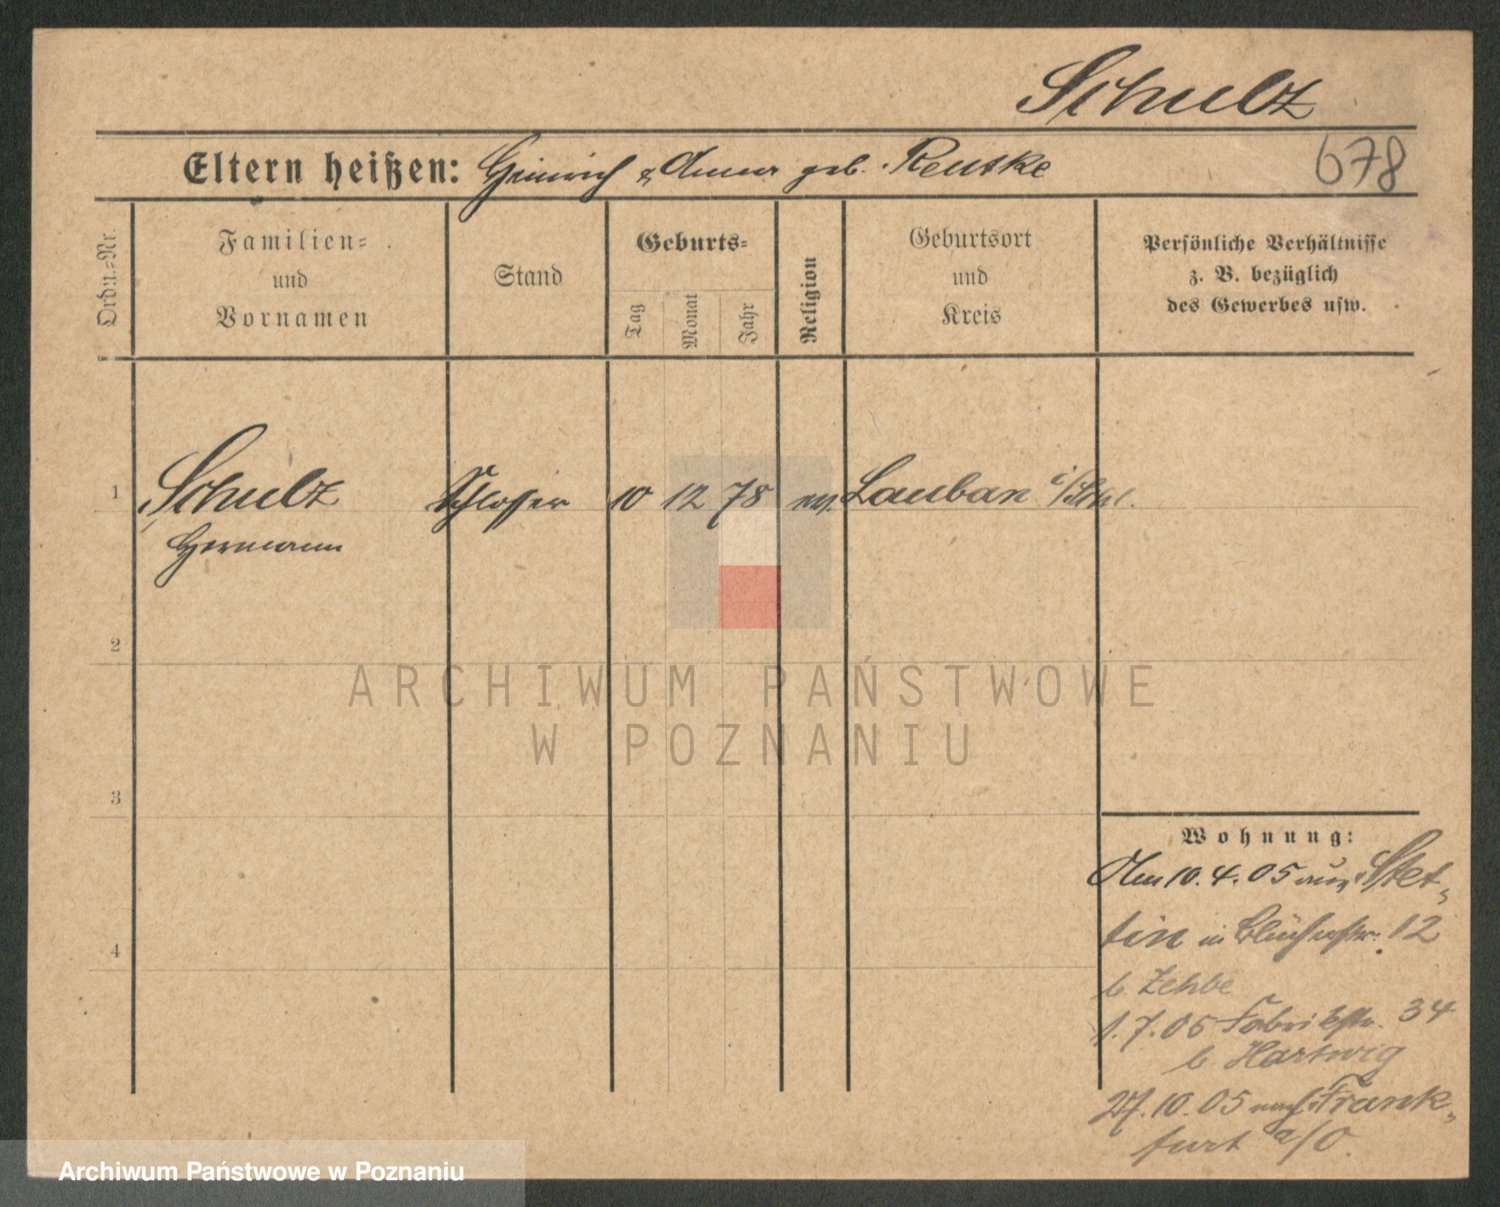 Schulz
Eltern heißen: Heinrich & Anna geb. Reuske
678
Ordn.-Nr.
Familien-
und
Vornamen
Stand
Geburts-
Tag
Monat
Jahr
Religion
Geburtsort
und
Kreis
Persönliche Verhältnisse
z. B. bezüglich
des Gewerbes usw.
1
Schulz
Hermann
Schlosser
10 12 78
ev.
Lauban i/Schl.
2
3
4
Wohnung:
Am 10.4.05 aus Stet-
tin in Blücherstr. 12
b. Zehbe
1.7.05 Fabrikstr. 34
b. Hartwig
27.10.05 nach Frank-
furt a/O.
ARCHIWUM PAŃSTWOWE
W POZNANIU
Archiwum Państwowe w Poznaniu